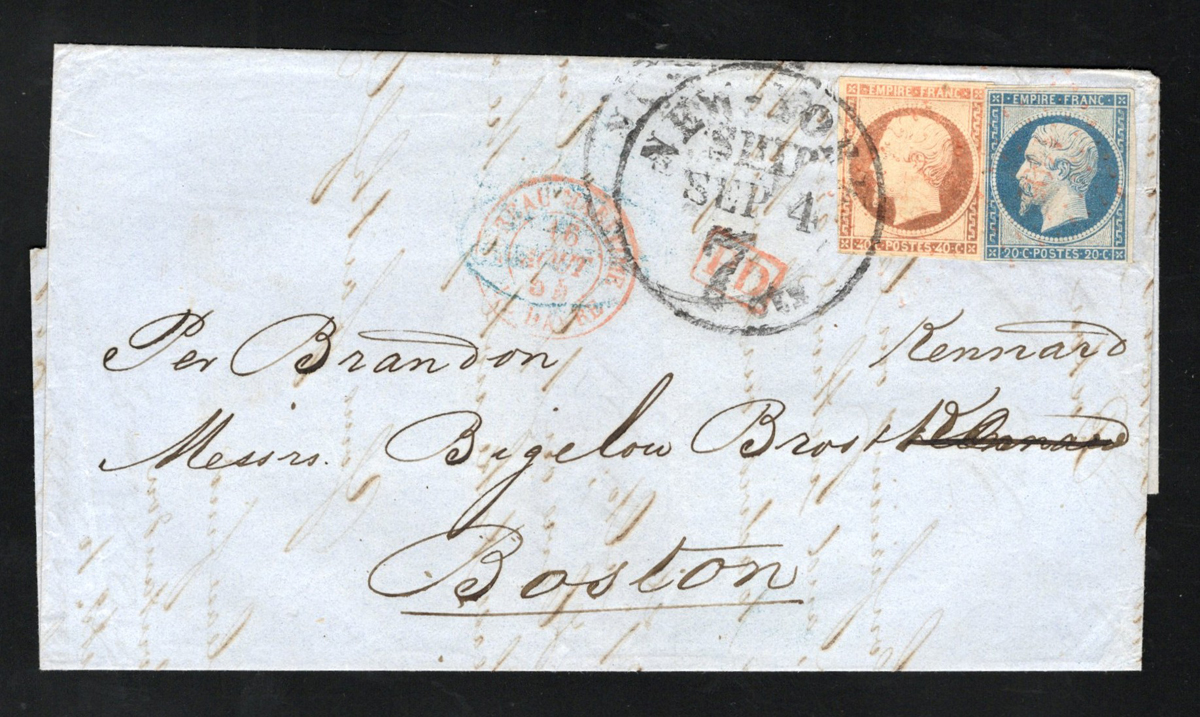 NEW-YORK
SHIP
SEP 4
7
EMPIRE·FRANC·
40·C·POSTES·40·C·
EMPIRE·FRANC·
20·C·POSTES·20·C·
16
AOUT
55
PD
Per Brandon
Kennard
Messrs. Bigelow Bros &
Boston